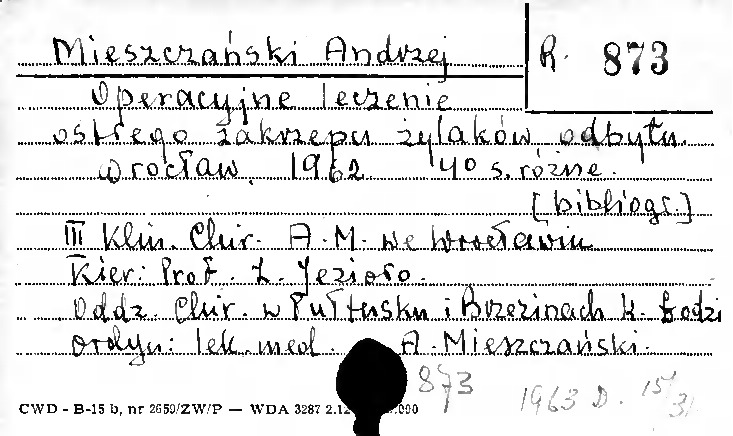 Mieszczański Andrzej
R. 873
Operacyjne leczenie
ostrego zakrzepu żylaków odbytu.
Wrocław, 1962 40 s. różne.
[bibliogr.]
III Klin. Chir. A.M. we Wrocławiu
Kier: Prof. Z. Jezioro.
Oddz. Chir. w Pułtusku i Brzezinach k. Łodzi
ordyn: lek. med. A. Mieszczański.
873
1963 D. 15/31
CWD - B-15 b, nr 2659/ZW/P — WDA 3287 2.12 .000